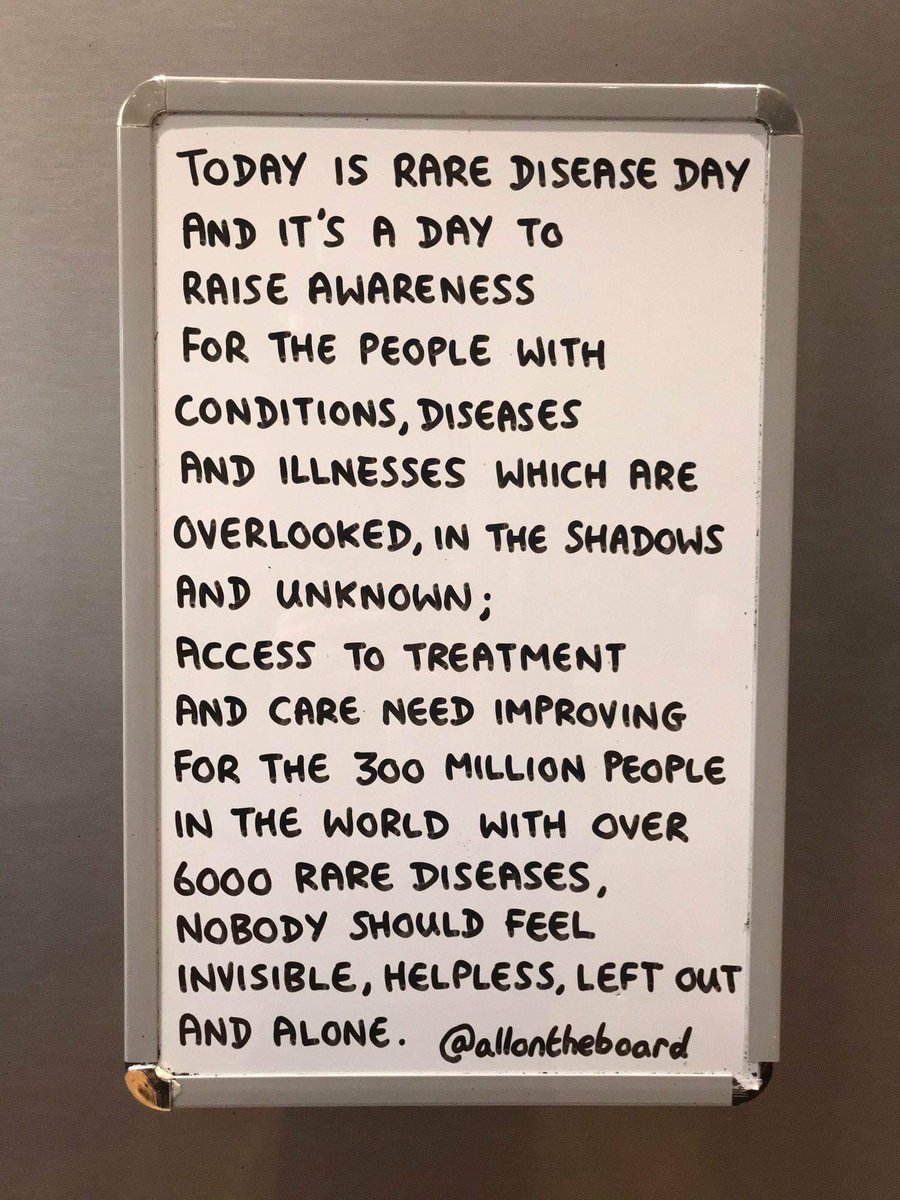 TODAY IS RARE DISEASE DAY
AND IT'S A DAY TO
RAISE AWARENESS
FOR THE PEOPLE WITH
CONDITIONS, DISEASES
AND ILLNESSES WHICH ARE
OVERLOOKED, IN THE SHADOWS
AND UNKNOWN;
ACCESS TO TREATMENT
AND CARE NEED IMPROVING
FOR THE 300 MILLION PEOPLE
IN THE WORLD WITH OVER
6000 RARE DISEASES,
NOBODY SHOULD FEEL
INVISIBLE, HELPLESS, LEFT OUT
AND ALONE. @allontheboard